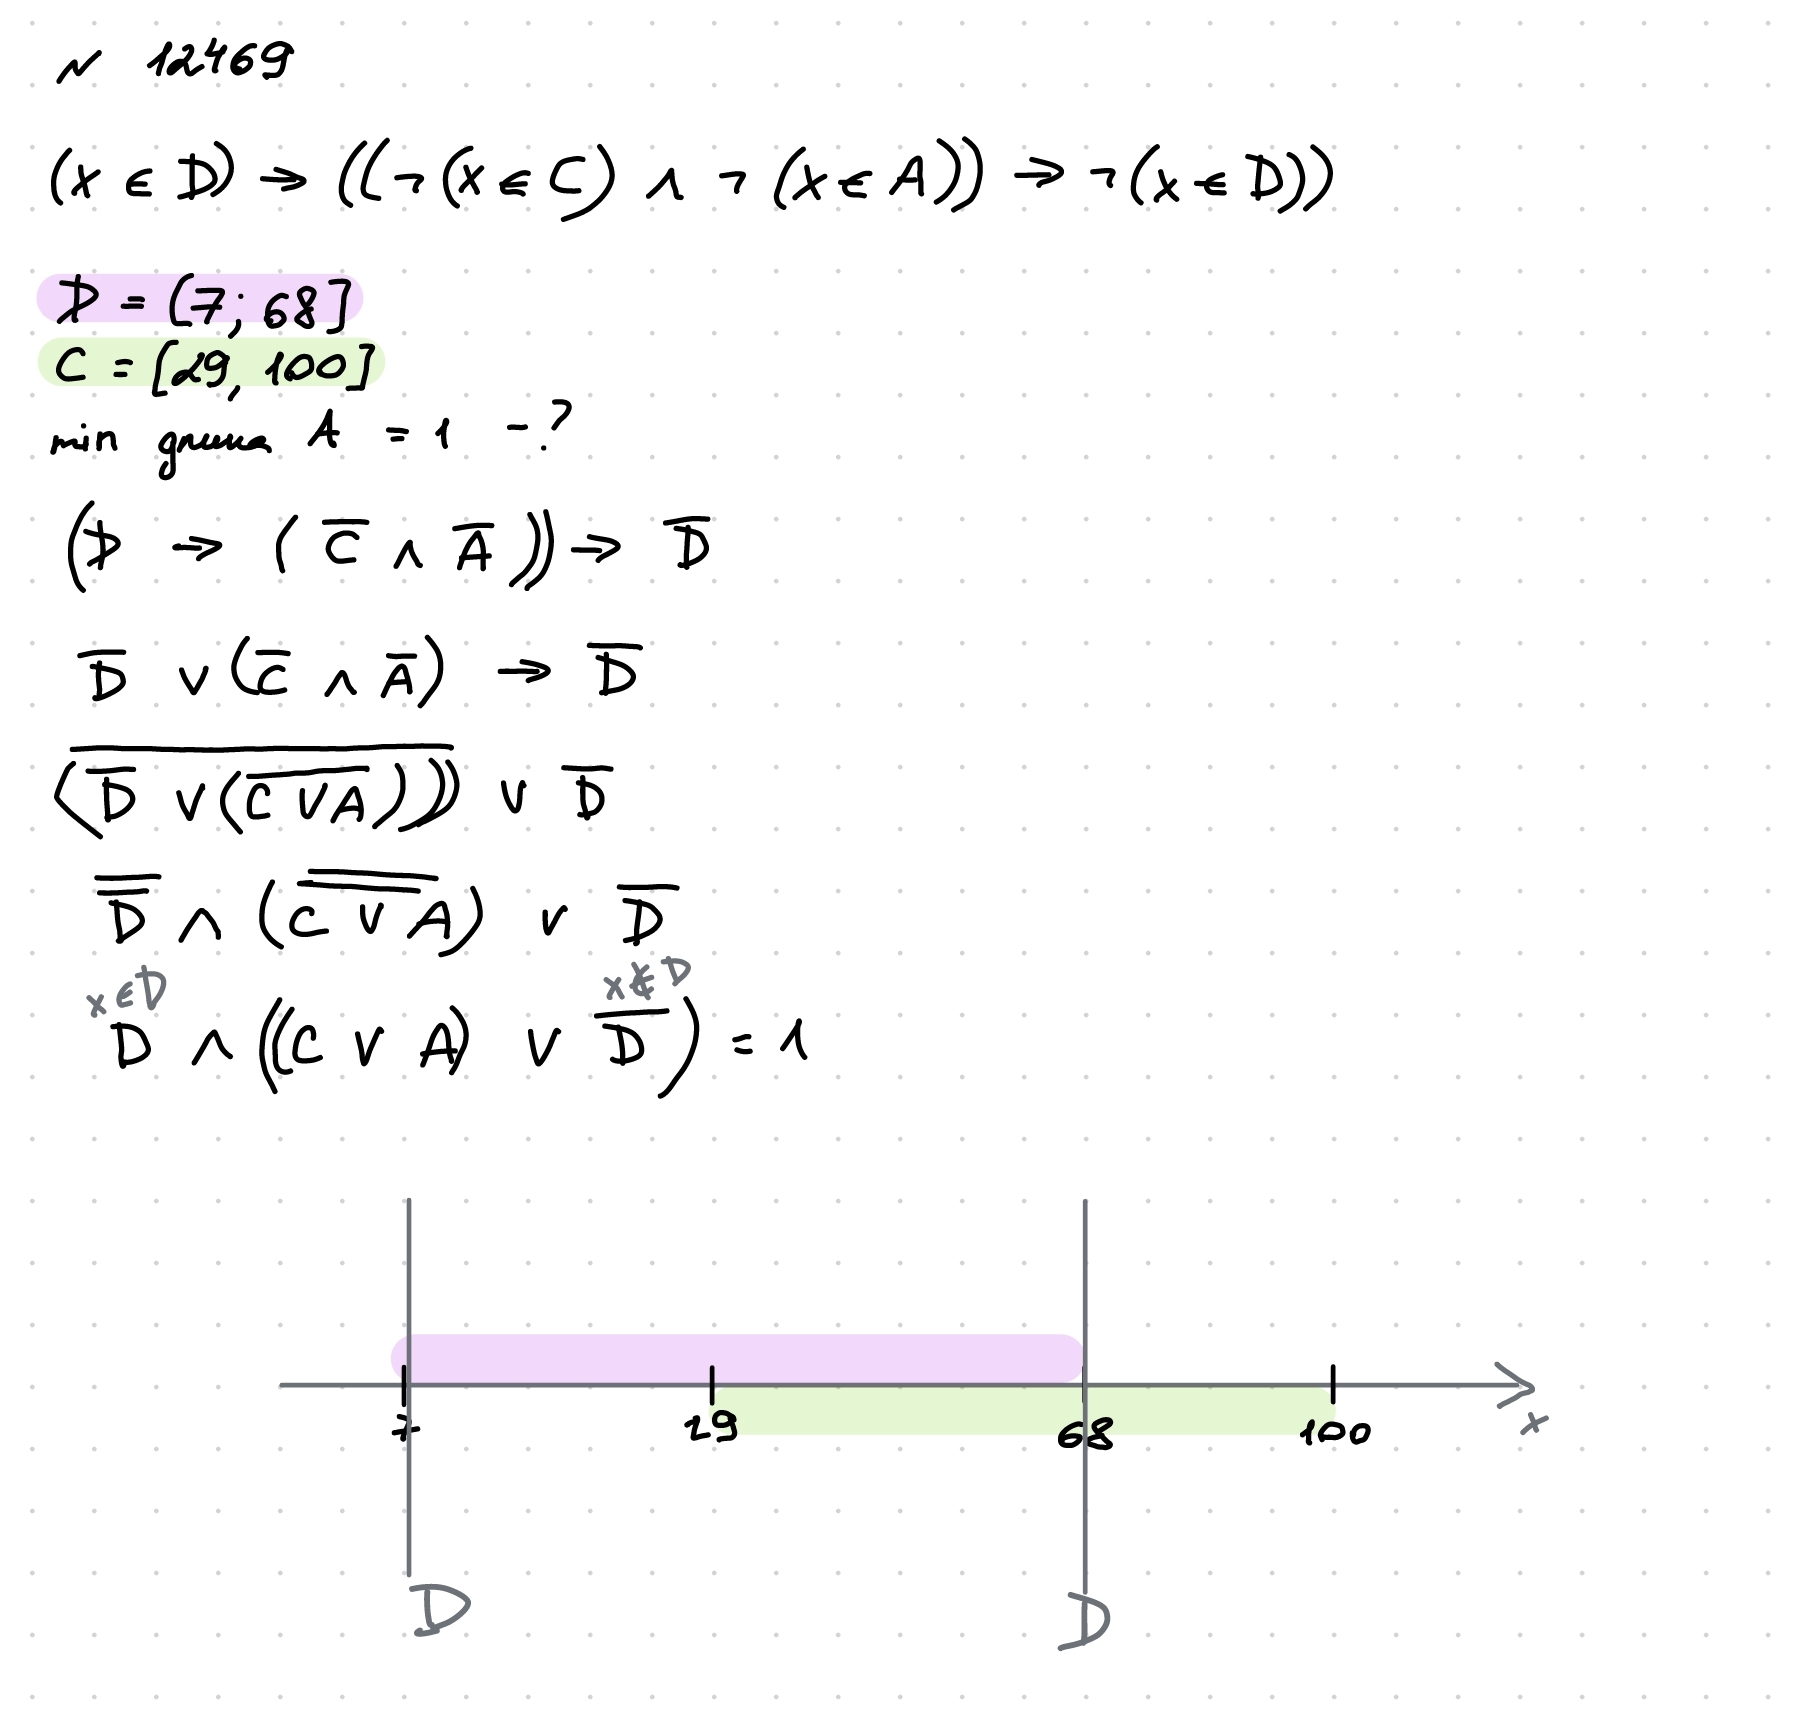 N 12469
(x ∈ D) → ((¬(x ∈ C) ∧ ¬(x ∈ A)) → ¬(x ∈ D))
D = [7; 68]
C = [29, 100]
min длина A = 1 - ?
(D → (C̅ ∧ A̅)) → D̅
D̅ ∨ (C̅ ∧ A̅) → D̅
\overline{(D̅ ∨ (\overline{C ∨ A})))} ∨ D̅
\overline{\overline{D}} ∧ (\overline{\overline{C ∨ A}}) ∨ D̅
x ∈ D x ∉ D
D ∧ ((C ∨ A) ∨ D̅) = 1
7 29 68 100 x
D D